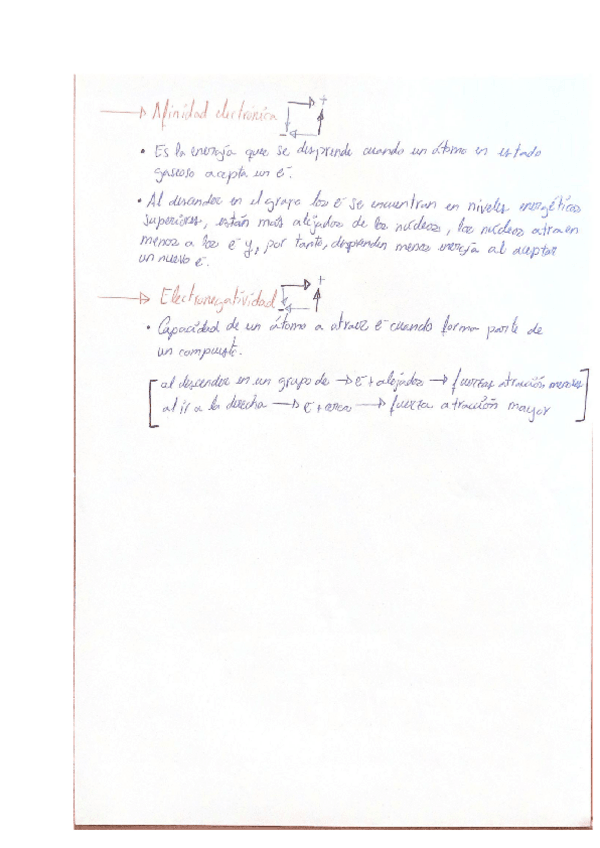 → Afinidad electrónica +
-
• Es la energía que se desprende cuando un átomo en estado
gaseoso acepta un e-.
• Al descender en el grupo los e- se encuentran en niveles energéticos
superiores, están más alejados de los núcleos, los núcleos atraen
menos a los e- y, por tanto, desprenden menos energía al aceptar
un nuevo e-.
→ Electronegatividad +
-
• Capacidad de un átomo a atraer e- cuando forma parte de
un compuesto.
[al descender en un grupo de → e- + alejados → fuerzas atracción menores
al ir a la derecha → e- + cerca → fuerza atracción mayor]